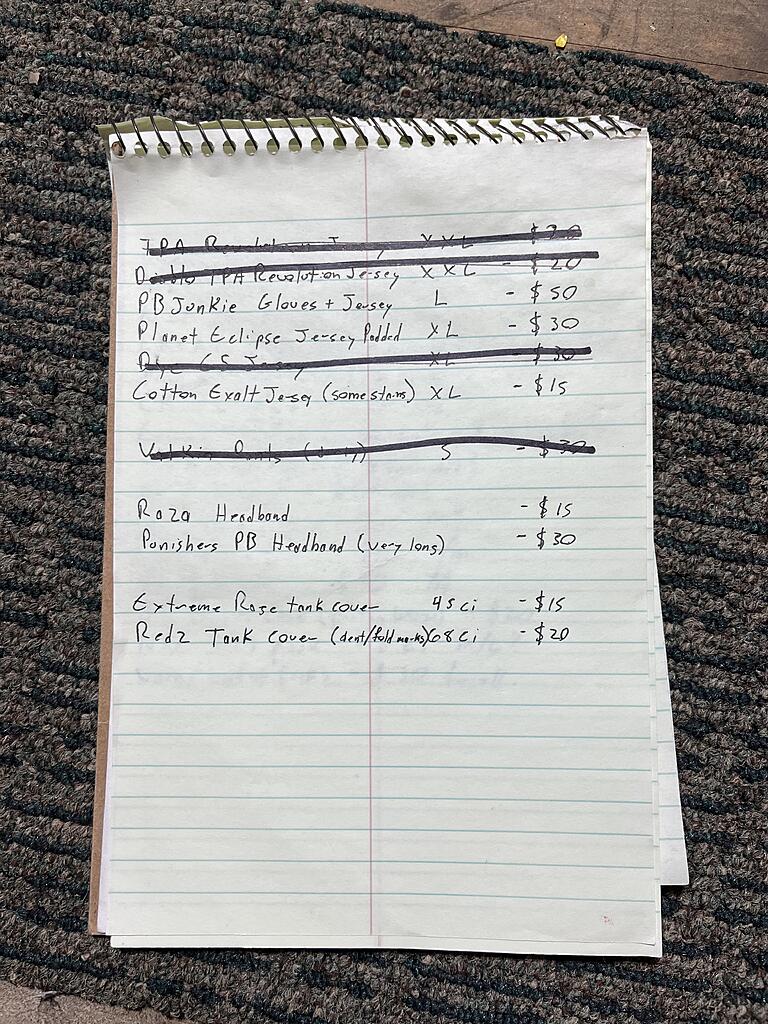 Jersey XXL - $30
Diablo TPA Revolution Jersey XXL - $20
PB Junkie Gloves + Jersey L - $50
Planet Eclipse Jersey Padded XL - $30
Dye Jersey XL - $30
Cotton Exalt Jersey (some stains) XL - $15
Pants S - $30
Raza Headband - $15
Punishers PB Headband (very long) - $30
Extreme Rage tank cover 45ci - $15
Redz Tank cover (dent/fold marks) 68ci - $20